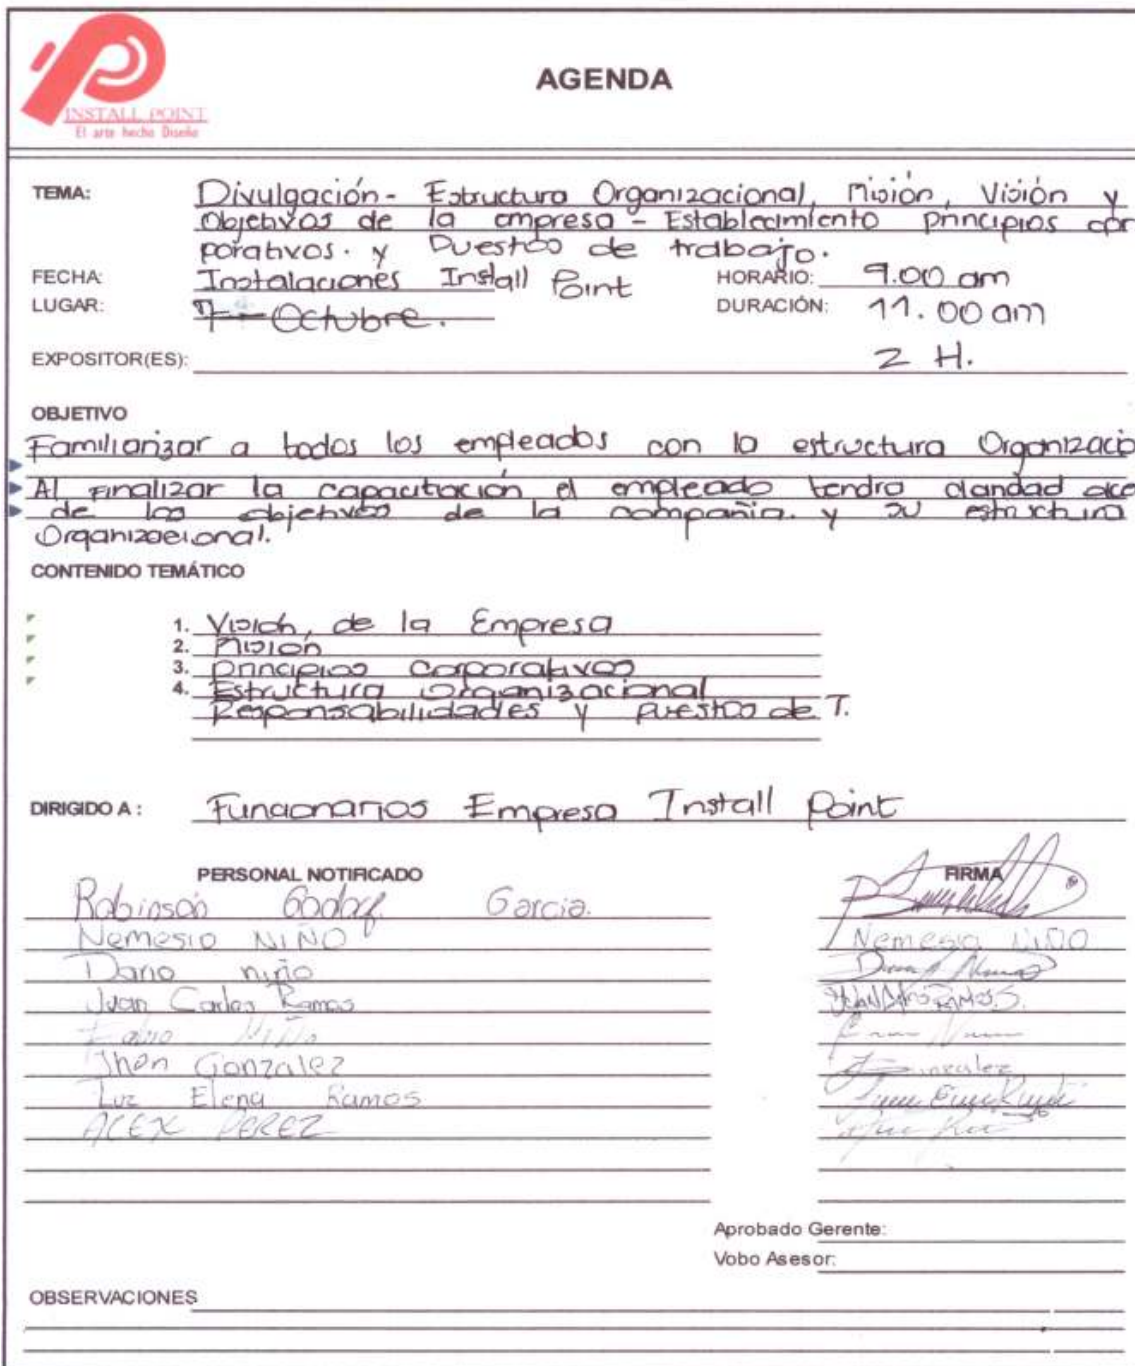 INSTALL POINT
El arte hecho Diseño
AGENDA
TEMA: Divulgación - Estructura Organizacional, Misión, Visión y
Objetivos de la empresa - Establecimiento principios cor
porativos. y Puestos de trabajo.
FECHA: Instalaciones Install Point HORARIO: 9.00 am
LUGAR: 7 - Octubre. DURACIÓN: 11.00 am
EXPOSITOR(ES): 2 H.
OBJETIVO
Familiarizar a todos los empleados con la estructura Organizacio
Al Finalizar la capacitación el empleado tendra claridad ace
de los objetivos de la compañia. y su estructura
Organizacional.
CONTENIDO TEMÁTICO
1. Visión, de la Empresa
2. Misión
3. Principios Corporativos
4. Estructura Organizacional
Responsabilidades y puestos de T.
DIRIGIDO A: Funcionarios Empresa Install Point
PERSONAL NOTIFICADO FIRMA
Robinson Godoy Garcia.
Nemesio NIÑO Nemesio NIÑO
Dario niño
Juan Carlos Ramos
Fabio Niño
Jhon Gonzalez Gonzalez
Luz Elena Ramos
ALEX PEREZ
Aprobado Gerente:
Vobo Asesor:
OBSERVACIONES